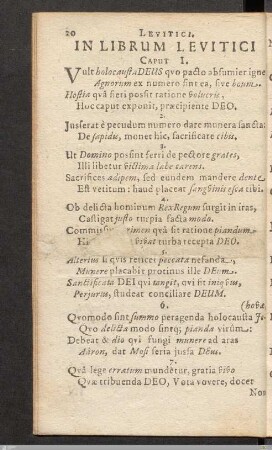 20 LEVITICI.
IN LIBRUM LEVITICI
CAPUT I.
Vult holocausta DEUS quo pacto absumier igne
Agnorum ex numero sint ea, sive boum.
Hostia quâ fieri possit ratione volucris.
Hoc caput exponit, præcipiente DEO.
2.
Jusserat è pecudum numero dare munera sancta:
De sapidis, monet hic, sacrificare cibis.
3.
Ut Domino possint ferri de pectore grates,
Illi libetur victima labe carens.
Sacrifices adipem, sed eundem mandere dente
Est vetitum: haud placeat sangvinis esca tibi.
4.
Ob delicta hominum Rex Regum surgit in iras,
Castigat justo turpia facta modo.
crimen quâ sit ratione piandum
turba recepta DEO.
5.
Alterius si qvis reticet peccata nefanda,
Munere placabit protinus ille DEum.
Sanctificata DEI qvi tangit, qvi sit iniqvus,
Perjurus, studeat conciliare DEUM.
6. (hovæ
Qvomodo sint summo peragenda holocausta Je-
Qvo delicta modo sintq; pianda virûm:
Debeat & dio qvi fungi munere ad aras
Aäron, dat Mosi seria jussa DEus.
7.
Quâ lege erratum mundetur, gratia vivo
Qvæ tribuenda DEO, Vota vovere, docet
Nos